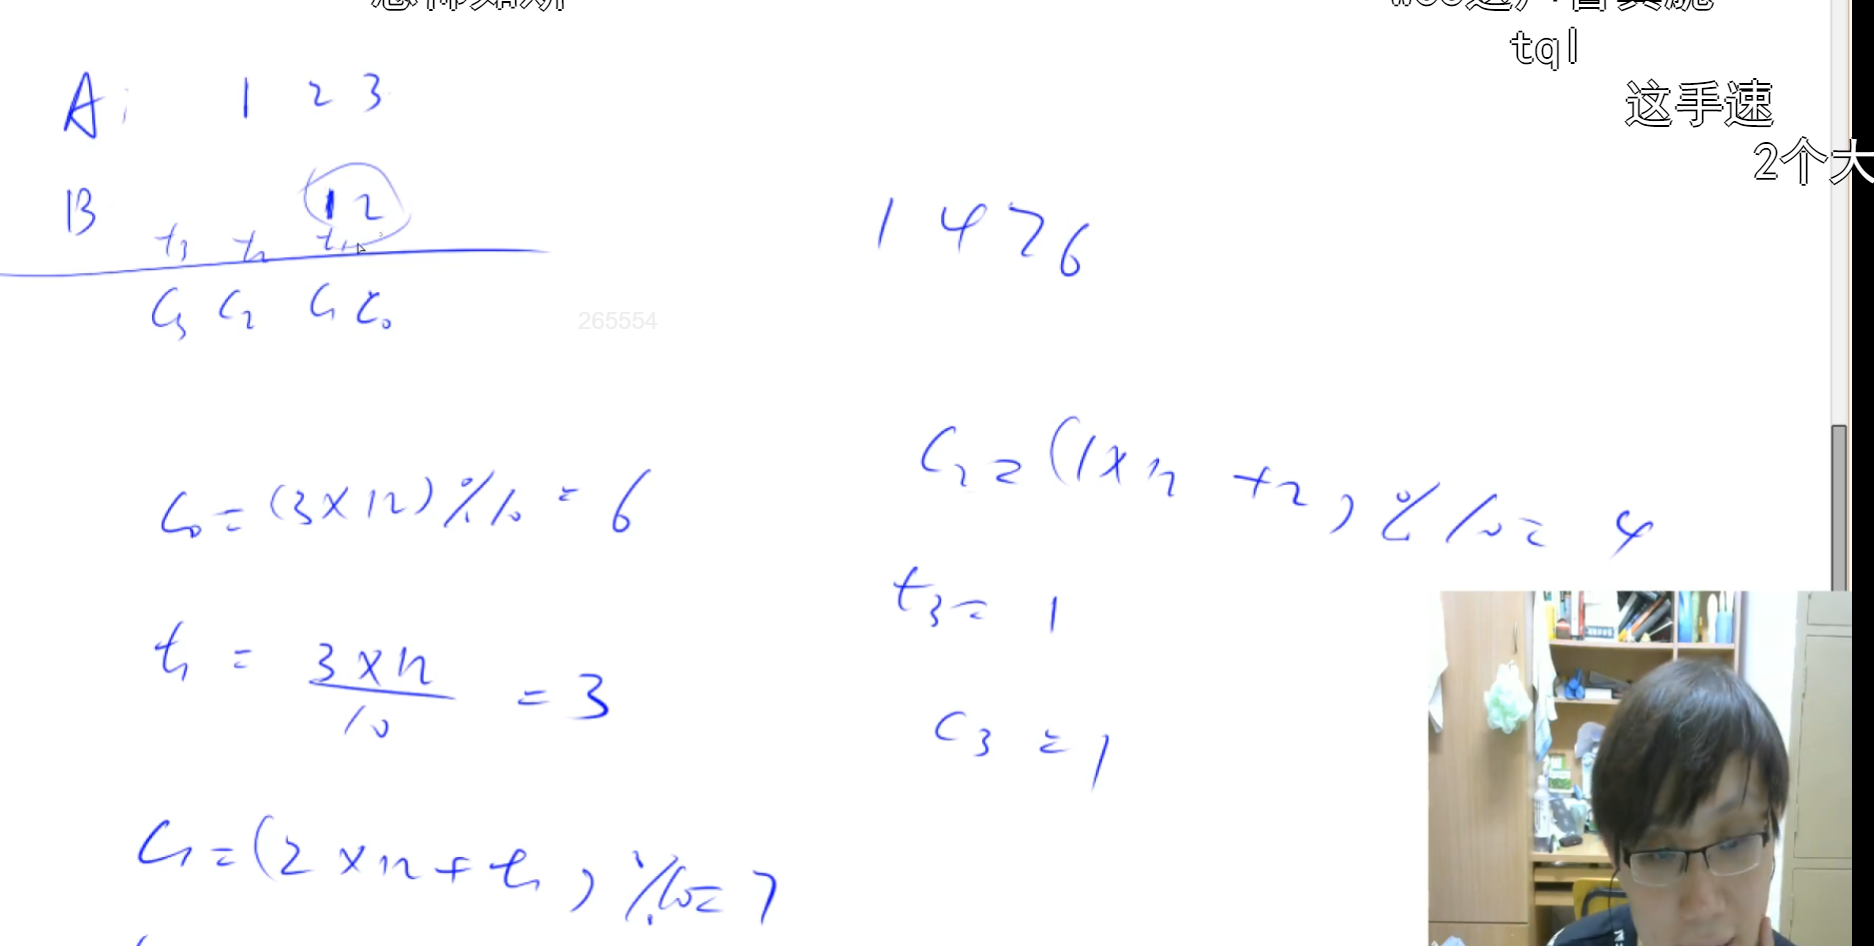 tql
这手速
2个大
A: 1 2 3
B 12
t3 t2 t1
C3 C2 C1 C0
1 4 7 6
265554
C0 = (3×12)%10 = 6
t1 = 3×12 / 10 = 3
C1 = (2×12+t1)%10 = 7
C2 = (1×12+2)%10 = 4
t3 = 1
C3 = 1